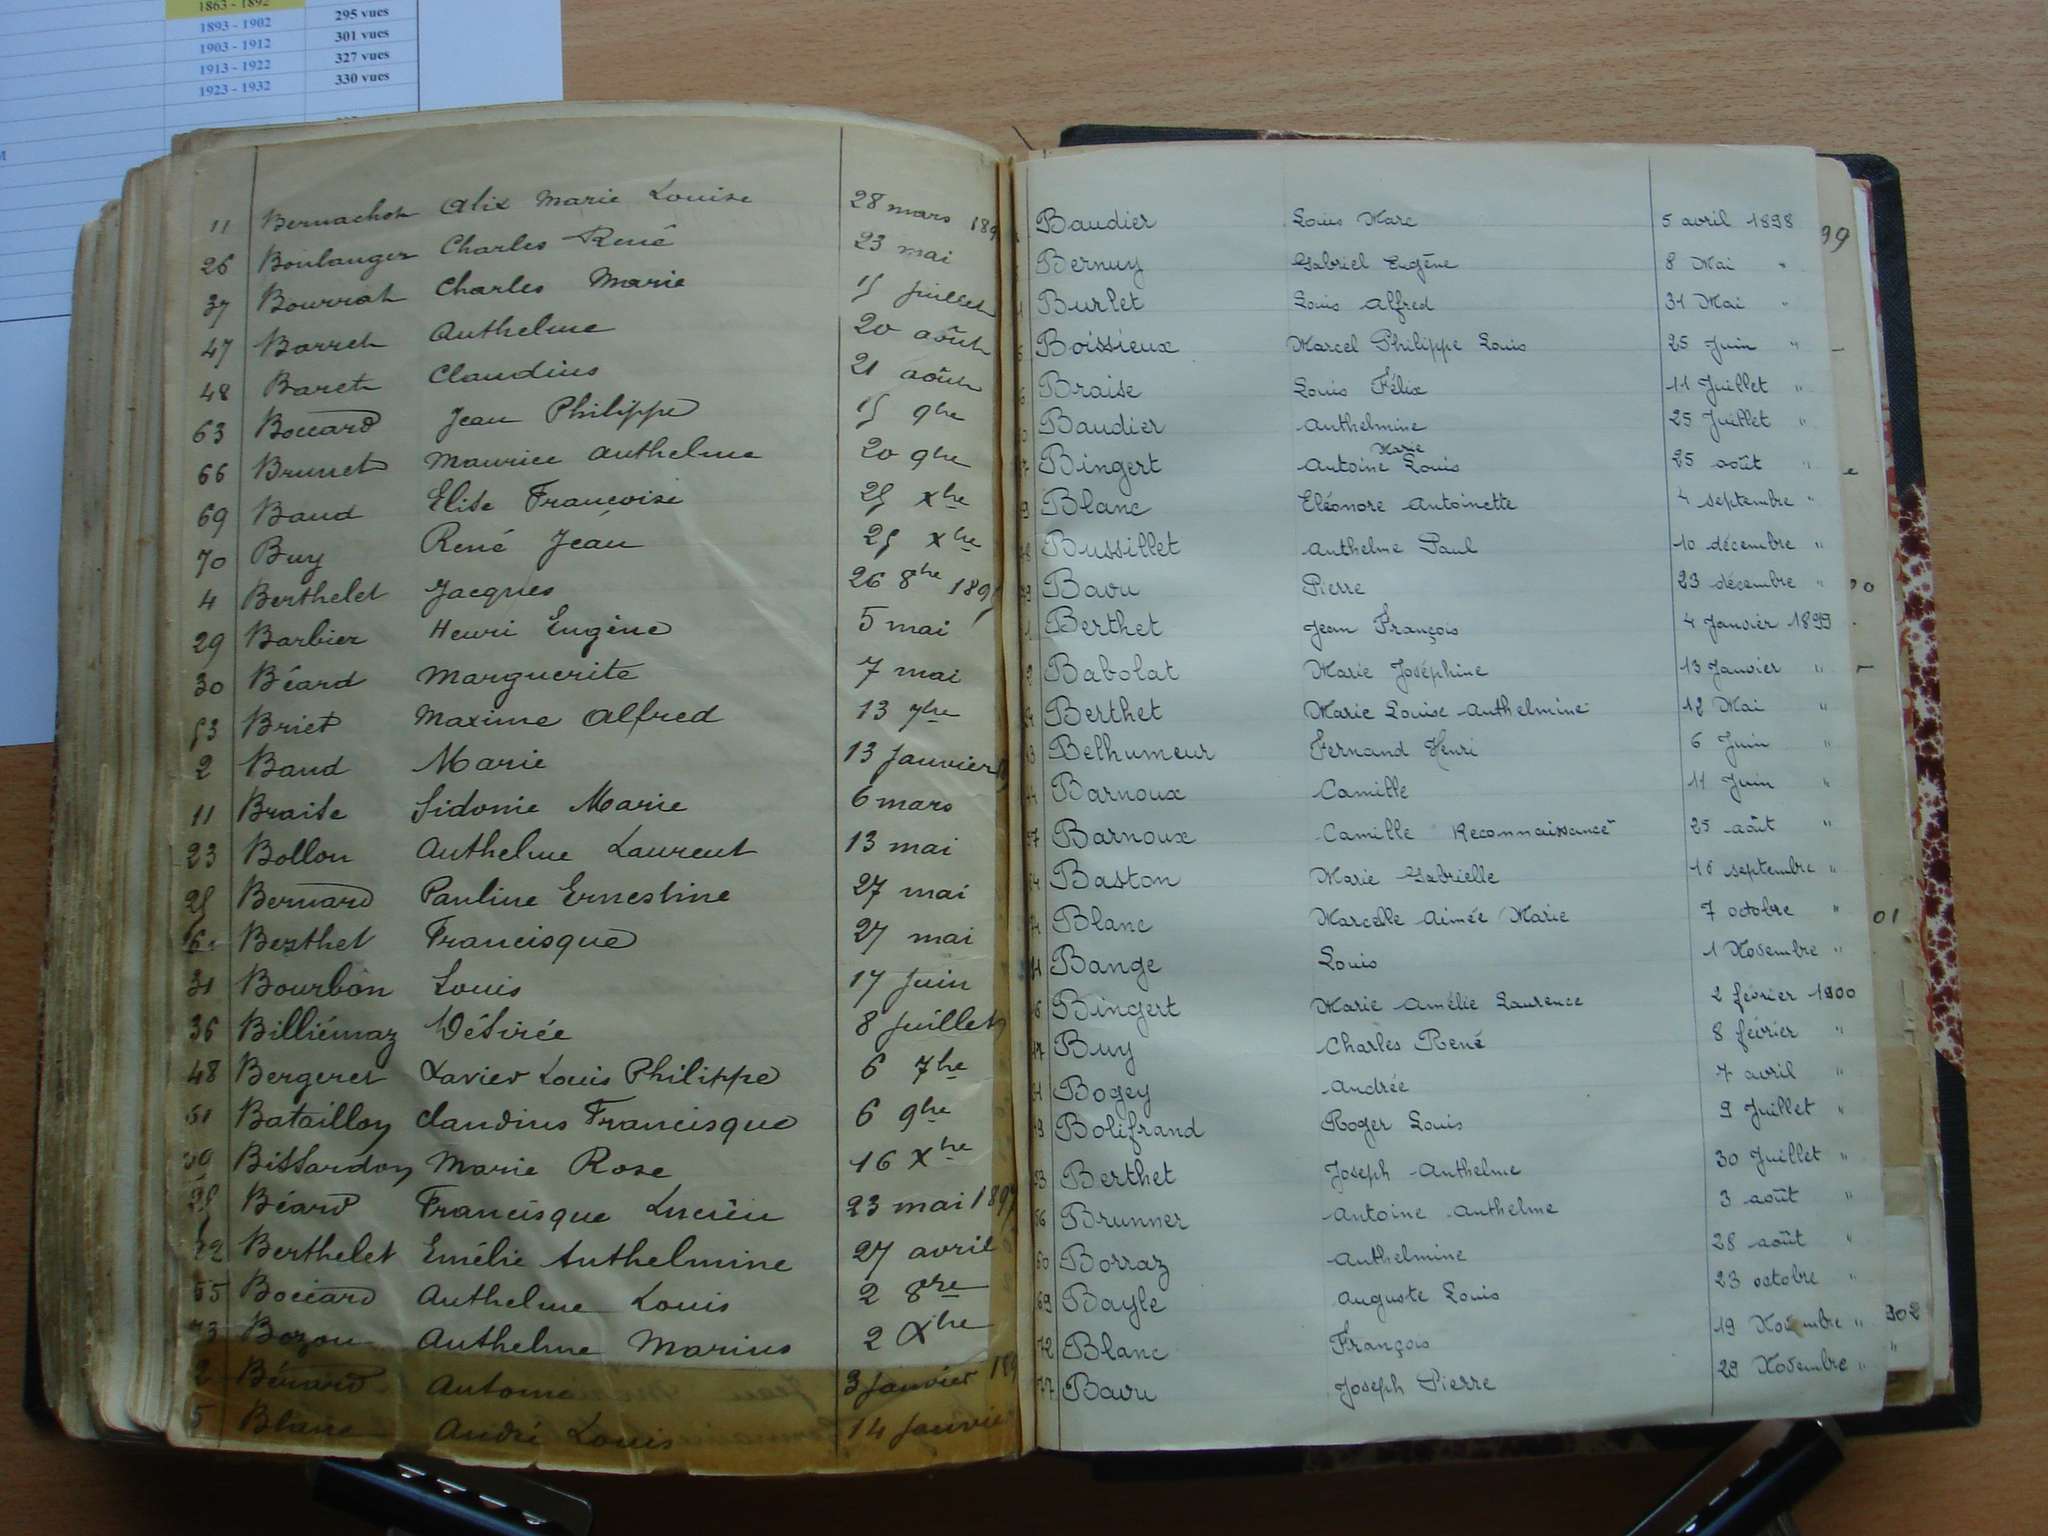 1863 - 1892
1893 - 1902 295 vues
1903 - 1912 301 vues
1913 - 1922 327 vues
1923 - 1932 330 vues
11 Bernachon Alix Marie Louise 28 mars 189
26 Boulanger Charles René 23 mai
37 Bourrat Charles Marie 15 juillet
47 Barret Anthelme 20 août
48 Baret Claudius 21 août
63 Boccard Jean Philippe 15 9bre
66 Brunet Maurice Anthelme 20 9bre
69 Baud Elise Françoise 25 Xbre
70 Buy René Jean 25 Xbre
4 Berthelet Jacques 26 8bre 1895
29 Barbier Henri Eugène 5 mai
30 Béard Marguerite 7 mai
53 Briet Maxime Alfred 13 7bre
2 Baud Marie 13 Janvier
11 Braise Sidonie Marie 6 mars
23 Bollon Anthelme Laurent 13 mai
25 Bernard Pauline Ernestine 27 mai
Berthet Francisque 27 mai
31 Bourbon Louis 17 Juin
36 Billiémaz Désirée 8 Juillet
48 Bergeret Xavier Louis Philippe 6 7bre
51 Bataillon Claudius Francisque 6 9bre
Bissardon Marie Rose 16 Xbre
Béard Francisque Lucien 23 mai 1897
22 Berthelet Emélie Anthelmine 27 avril
55 Boccard Anthelme Louis 2 8bre
73 Bozon Anthelme Marius 2 Xbre
2 Bénard Antoine 3 Janvier 189
5 Blanc André Louis 14 Janvier
Baudier Louis Marc 5 avril 1898
99
Bernuy Gabriel Eugène 8 Mai "
Burlet Louis Alfred 31 Mai "
Boissieux Marcel Philippe Louis 25 Juin "
Braise Louis Félix 11 Juillet "
Baudier Anthelmine 25 Juillet "
Marie
Bingert Antoine Louis 25 août "
Blanc Eléonore Antoinette 4 septembre "
Bussillet Anthelme Paul 10 décembre "
Bavu Pierre 23 décembre "
Berthet Jean François 4 Janvier 1899
Babolat Marie Joséphine 13 Janvier "
Berthet Marie Louise Anthelmine 12 Mai "
Belhumeur Fernand Henri 6 Juin "
Barnoux Camille 11 Juin "
Barnoux Camille Reconnaissance 25 août "
Baston Marie Gabrielle 16 septembre "
Blanc Marcelle Aimée Marie 7 octobre "
01
Bange Louis 1 Novembre "
Bingert Marie Amélie Laurence 2 février 1900
Buy Charles René 8 février "
Bogey Andrée 7 avril "
Bolifrand Roger Louis 9 Juillet "
Berthet Joseph Anthelme 30 Juillet "
Brunner Antoine Anthelme 3 août "
Borraz Anthelmine 28 août "
69 Bayle Auguste Louis 23 octobre "
72 Blanc François 19 Novembre "
902
77 Bavu Joseph Pierre 29 Novembre "